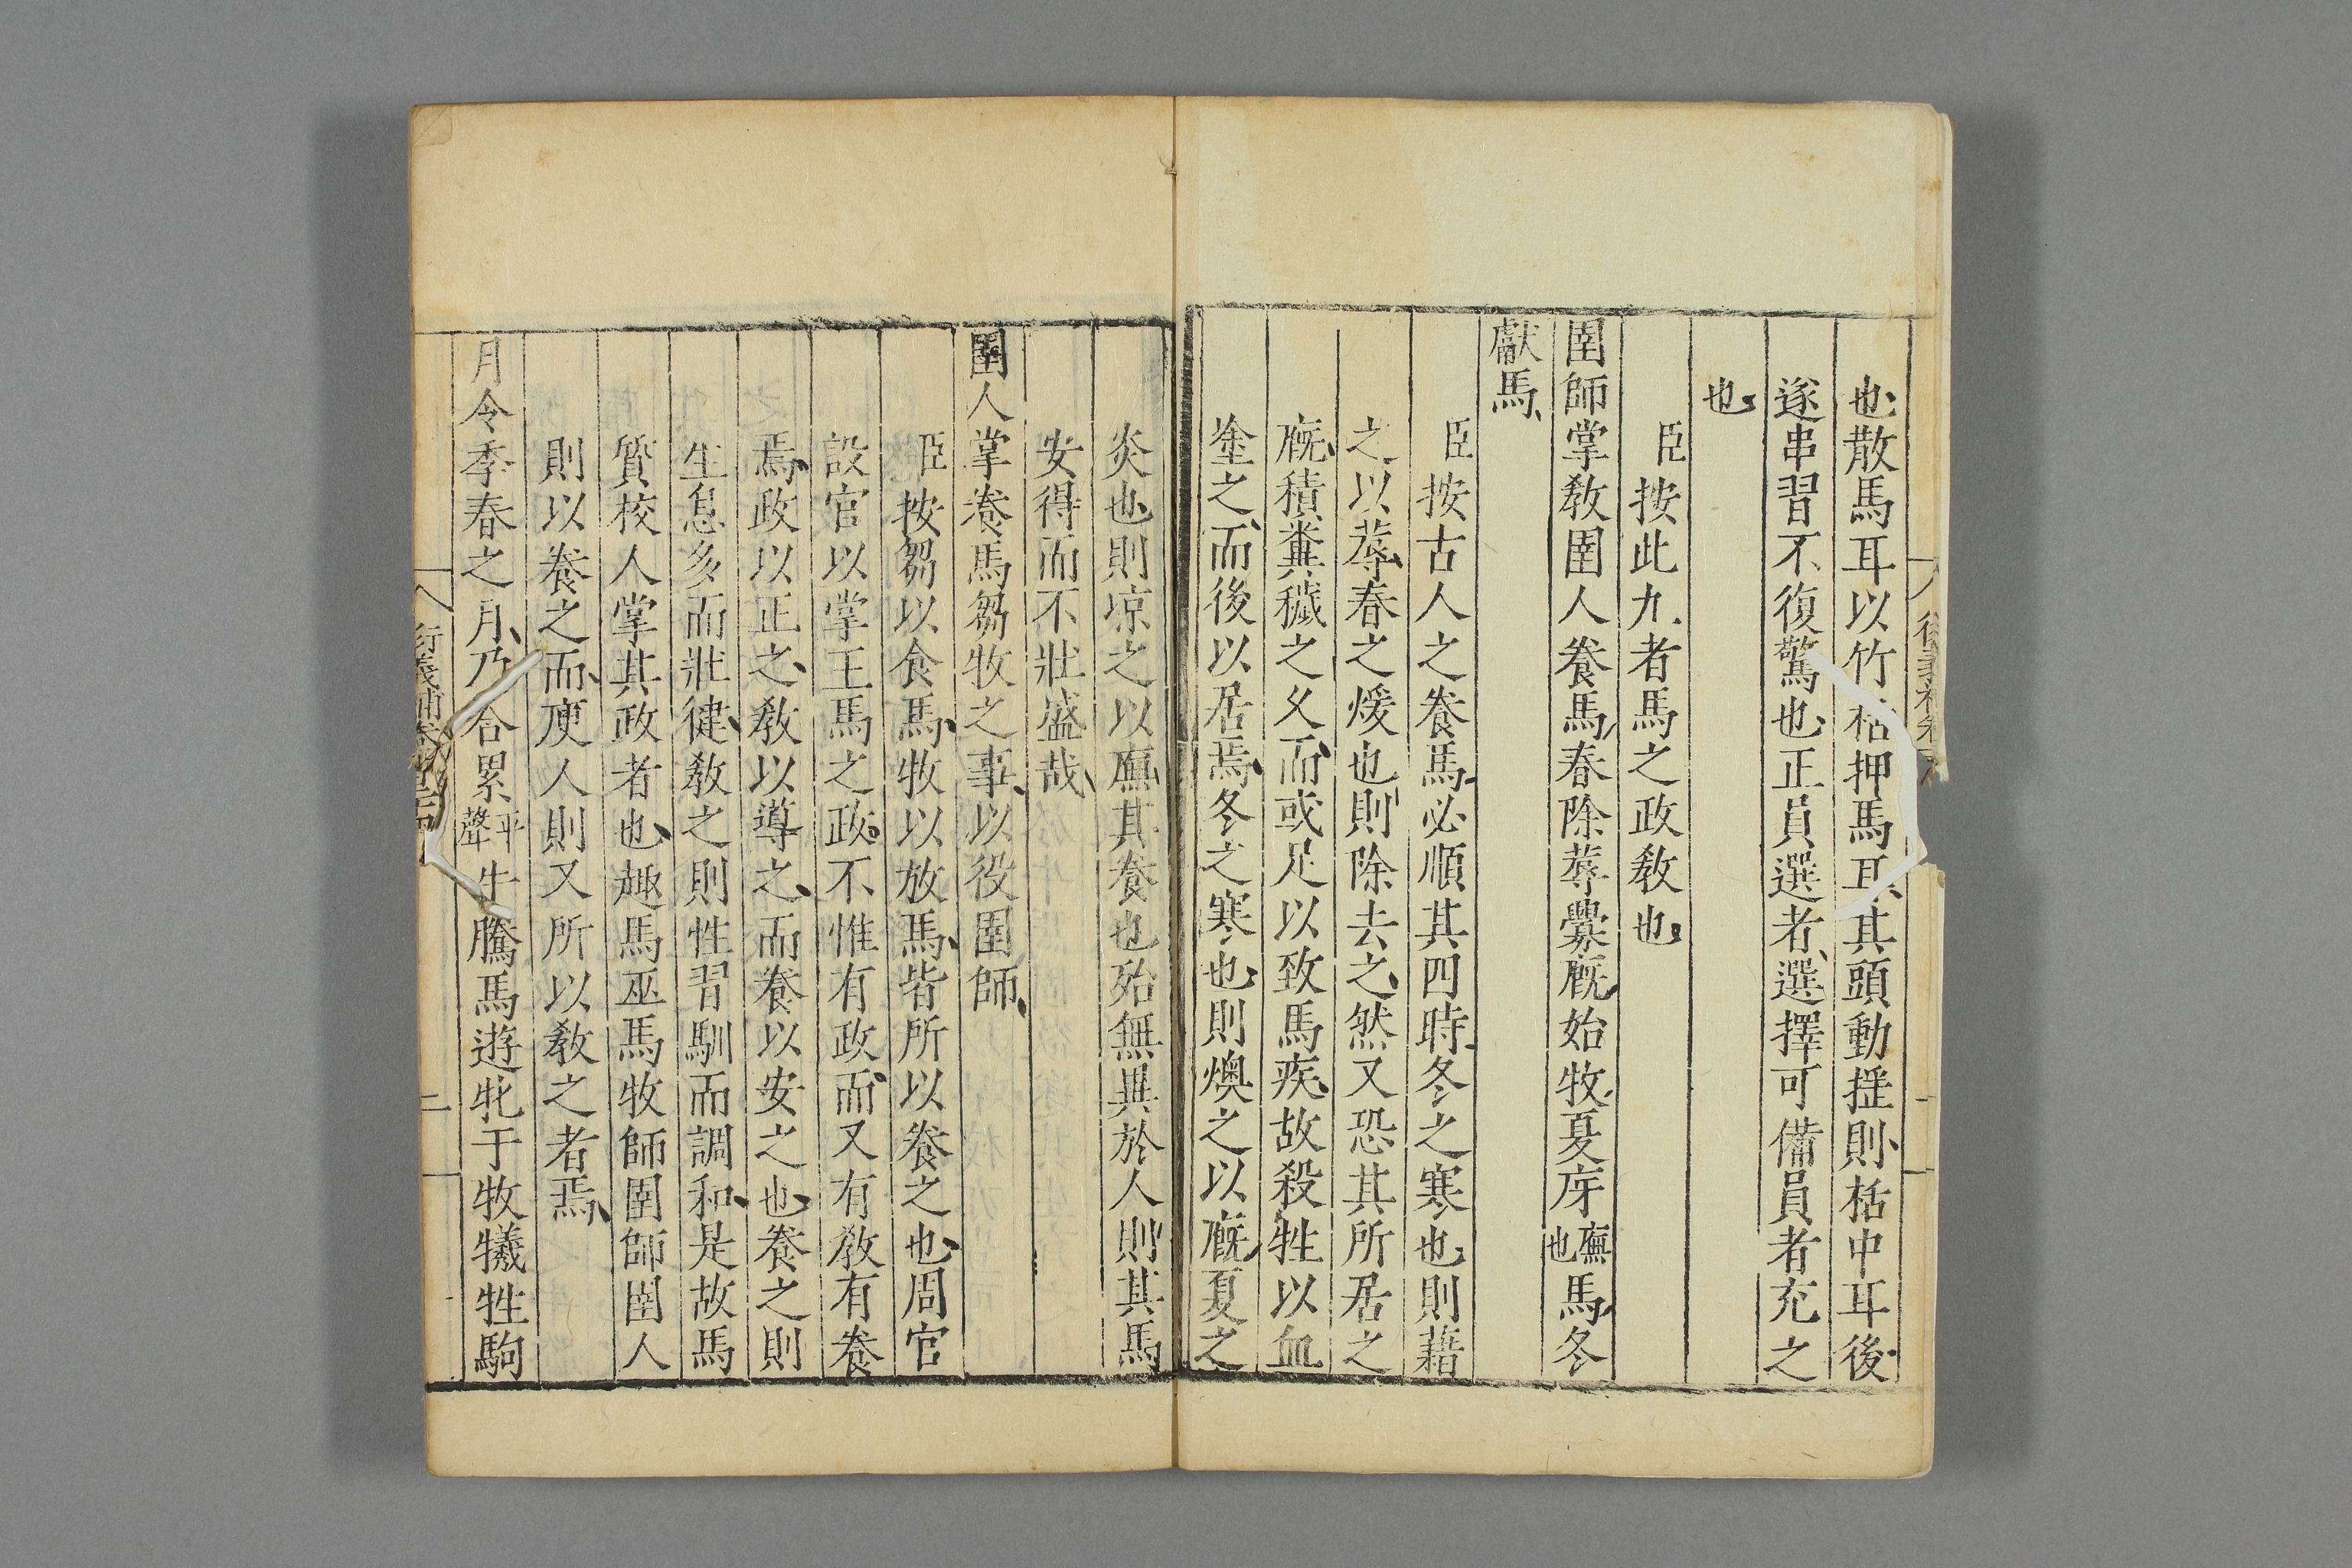 也散馬耳以竹栝押馬耳其頭動搖則栝中耳後
遂串習不復驚也正員選者選擇可備員者充之
也
臣按此九者馬之政教也
圉師掌教圉人養馬春除蓐釁廐始牧夏庌廡也馬冬
獻馬
臣按古人之養馬必順其四時冬之寒也則藉
之以蓐春之煖也則除去之然又恐其所居之
廐積糞穢之久而或足以致馬疾故殺牲以血
塗之而後以居焉冬之寒也則燠之以廐夏之
炎也則凉之以廡其養也殆無異於人則其馬
安得而不壯盛哉
圉人掌養馬芻牧之事以役圉師
臣按芻以食馬牧以放馬皆所以養之也周官
設官以掌王馬之政不惟有政而又有教有養
焉政以正之教以導之而養以安之也養之則
生息多而壯健教之則性習馴而調和是故馬
質校人掌其政者也趣馬巫馬牧師圉師圉人
則以養之而庾人則又所以教之者焉
月令季春之月乃合累平聲牛騰馬遊牝于牧犧牲駒
衍義補卷
二